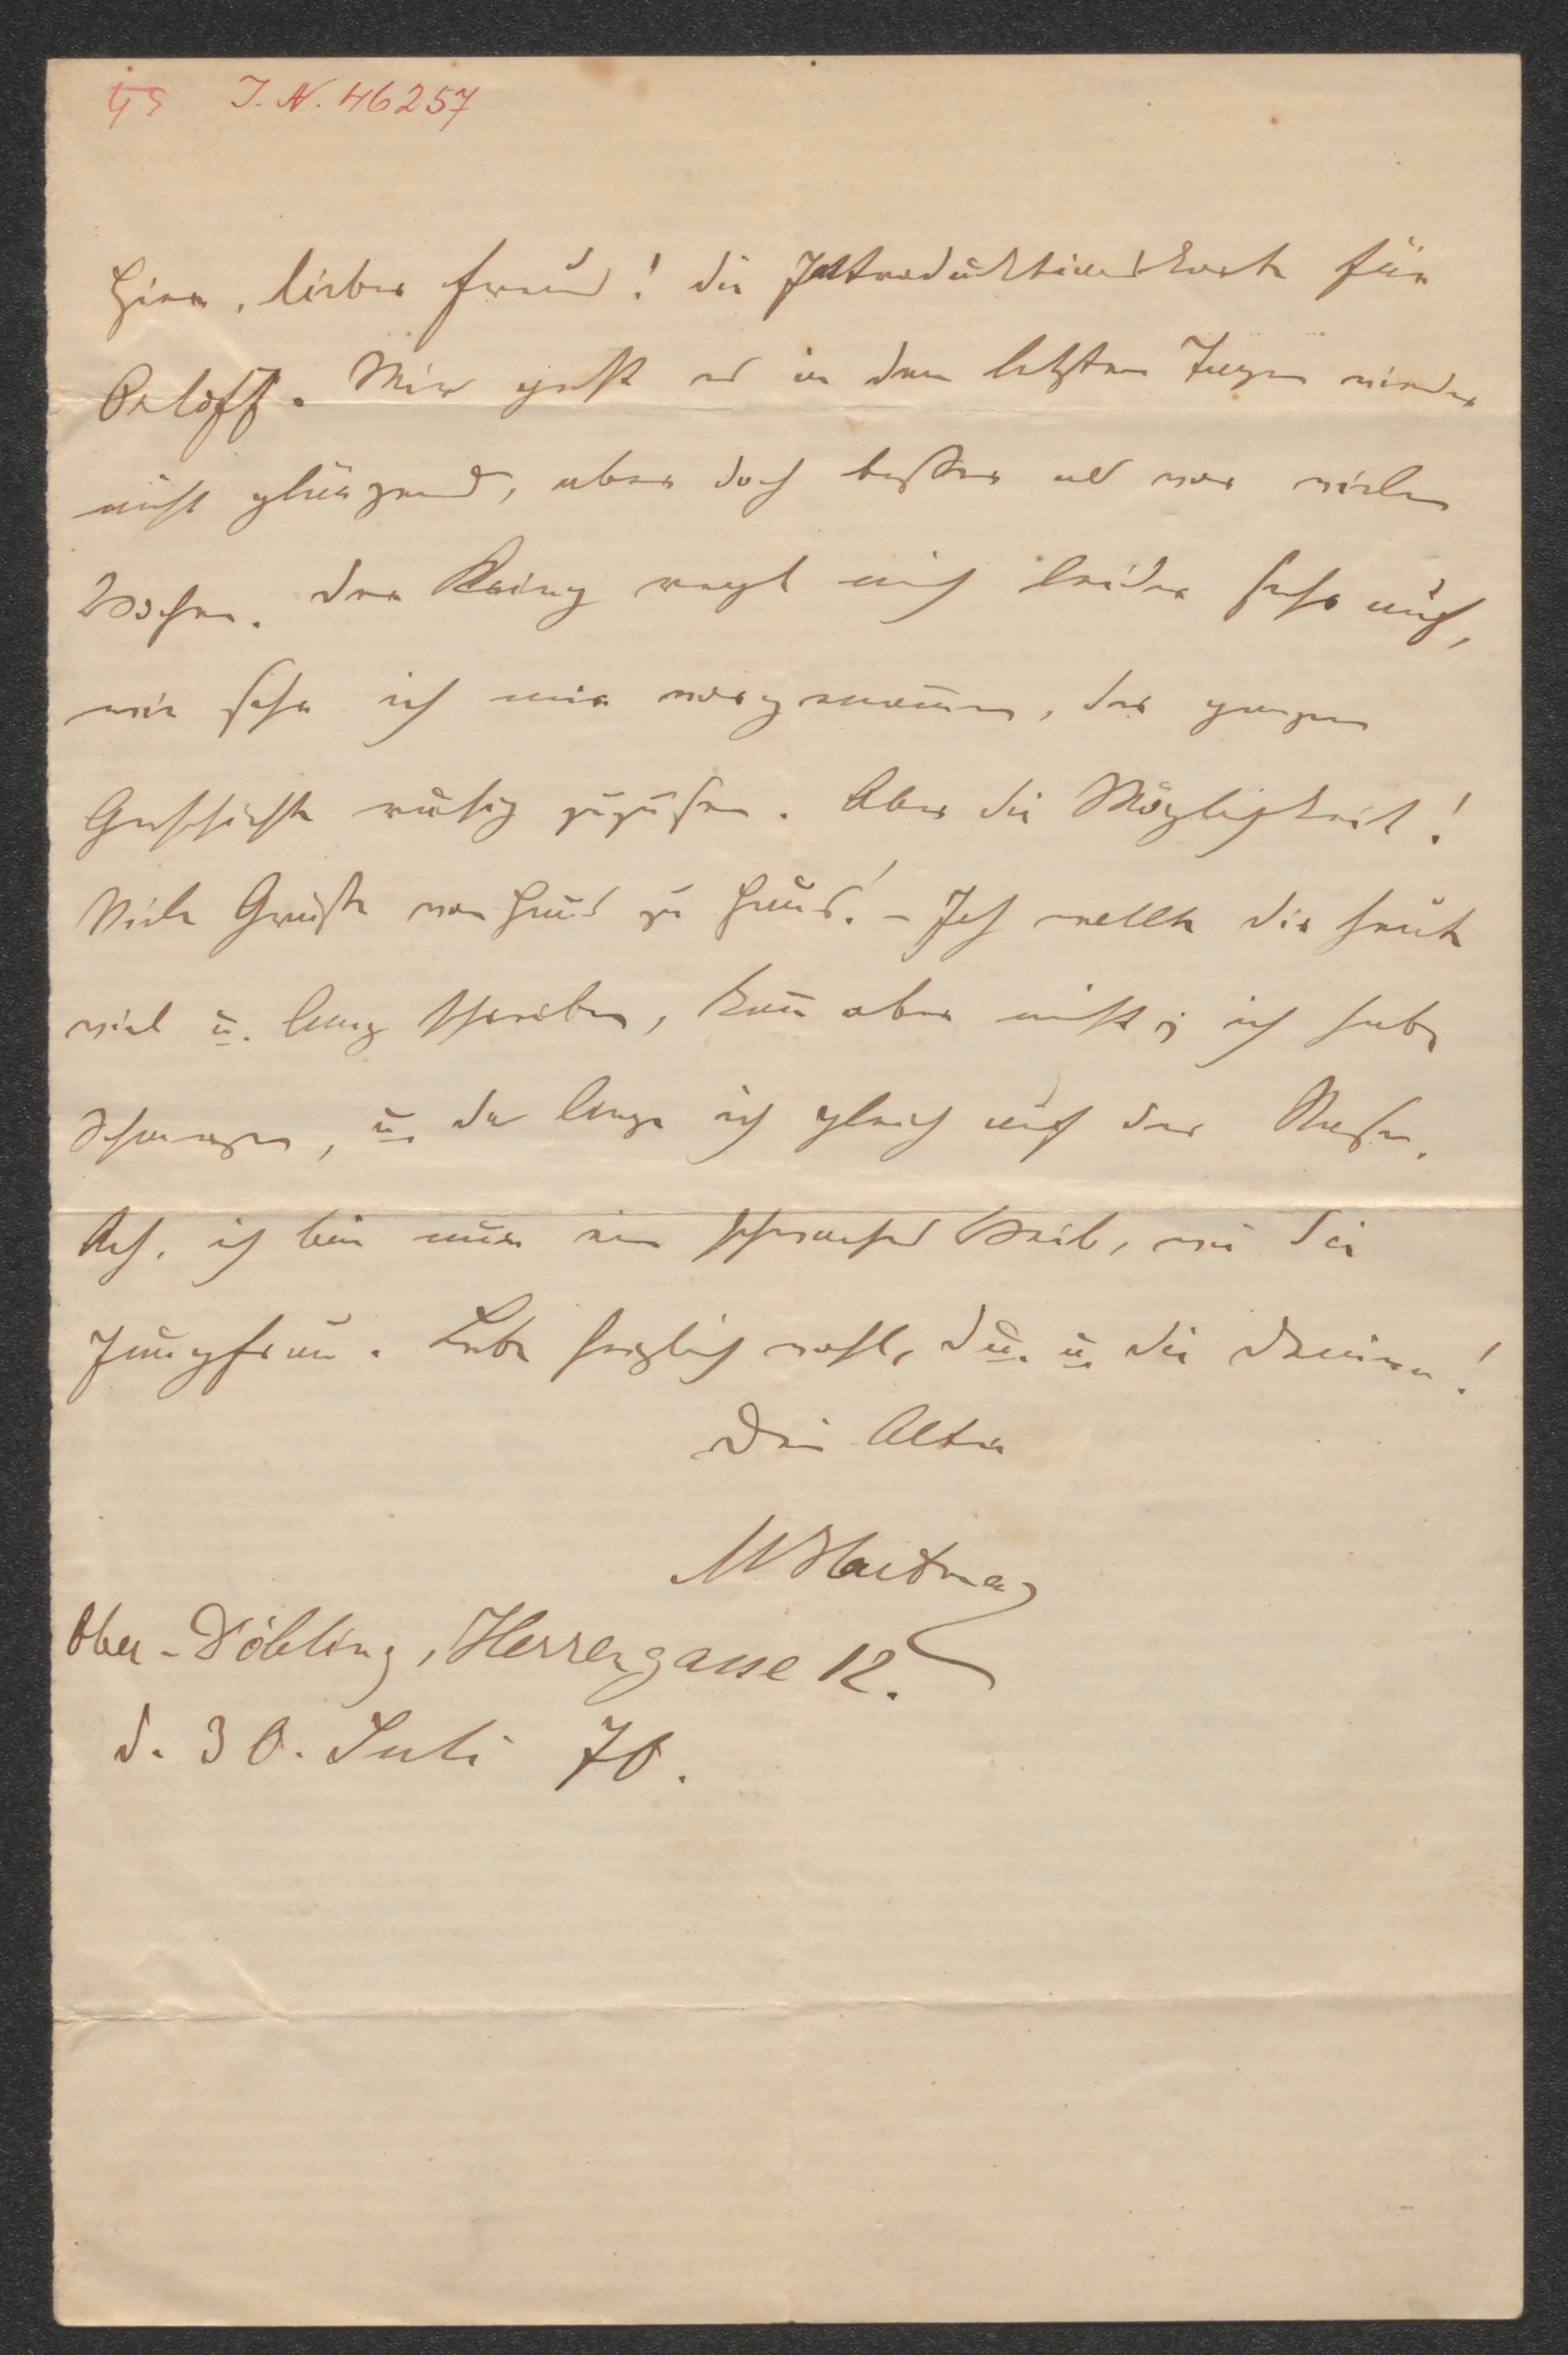 I. N. 46257
Hier, lieber Freund! die Introduktionskarte für
Orloff. Mir geht es in den letzten Tagen wieder
nicht glänzend, aber doch besser als vor vielen
Wochen. Der Krieg regt mich leider sehr auf,
wie sehr ich mir vorgenom̄en, der ganzen
Geschichte ruhig zuzusehen. Aber die Möglichkeit!
Viele Grüße von Haus zu Haus! – Ich wollte dir heute
viel u. lang schreiben, kan̄ aber nicht; ich habe
Schmerzen, u. da liege ich gleich auf der Nase.
Ach, ich bin nur ein schwaches Weib, wie die
Jungfrau. Lebe herzlich wohl, du u. die Deinen!
Dein Alter
MHartmann
Ober-Döbling, Herrengasse 12.
d. 30. Juli 70.